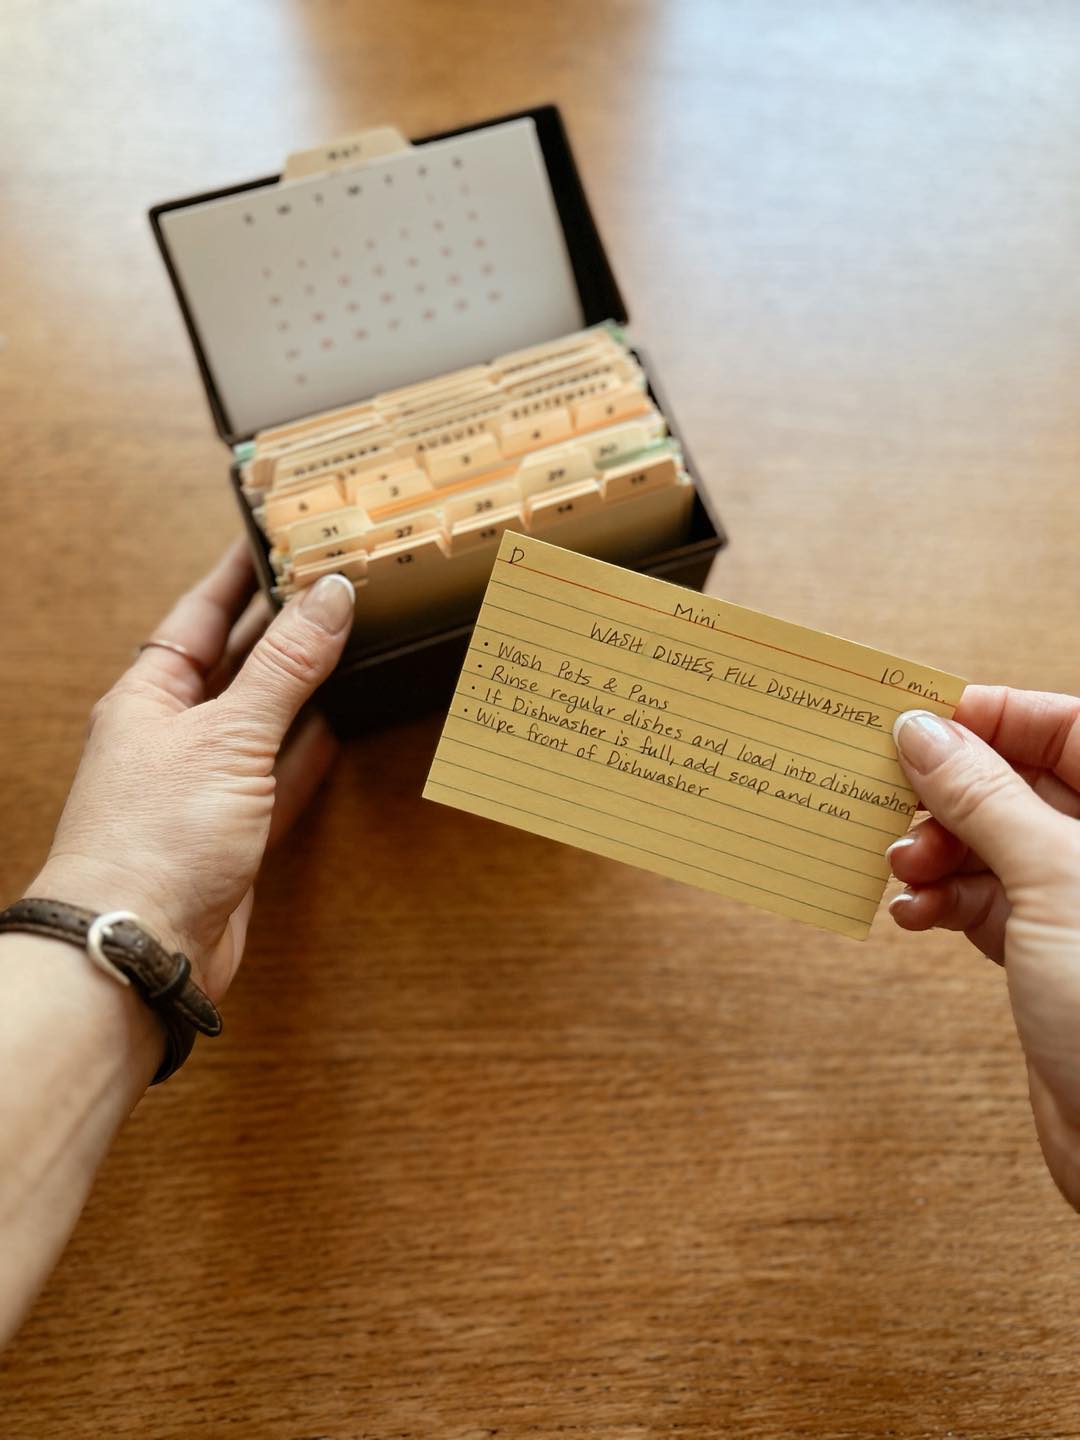 S M T W T F S
OCTOBER
AUGUST
SEPTEMBER
6
2
3
4
5
31
27
28
29
30
12
13
14
15
D
Mini
10 min.
WASH DISHES, FILL DISHWASHER
• Wash Pots & Pans
• Rinse regular dishes and load into dishwasher
• If Dishwasher is full, add soap and run
• Wipe front of Dishwasher